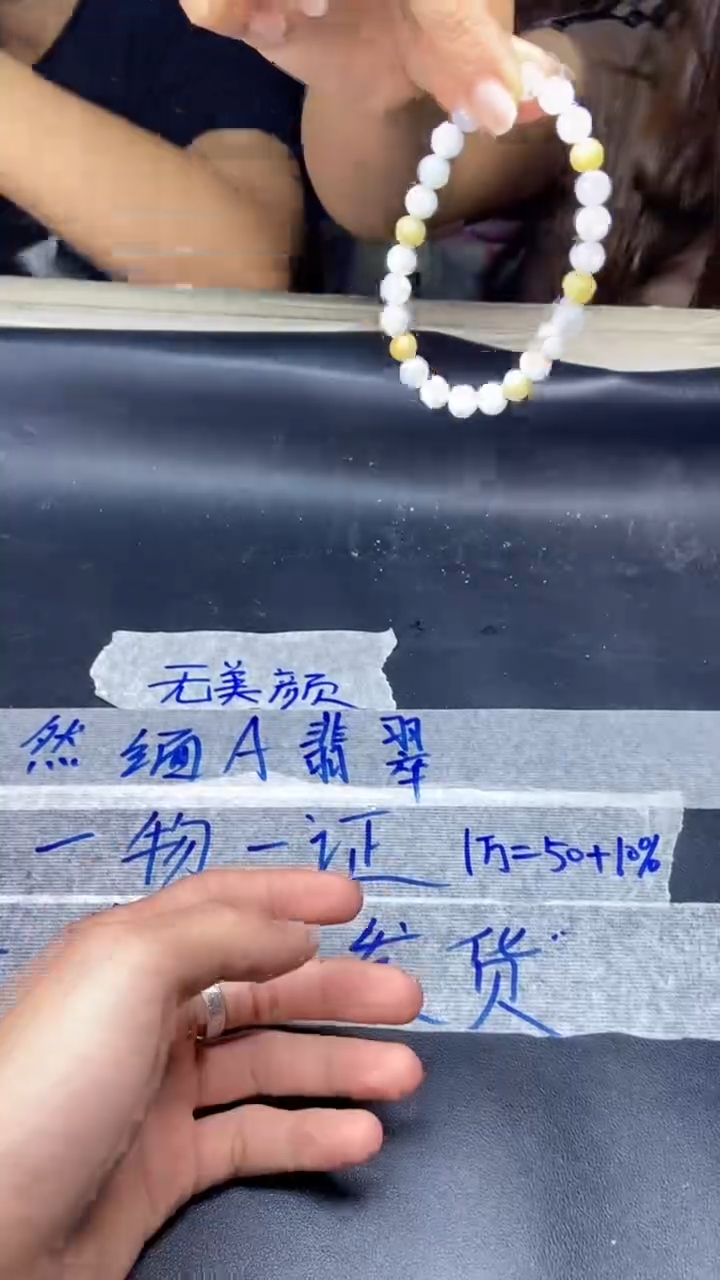 无美颜
然缅A翡翠
一物一证 1万=50+10%
发货